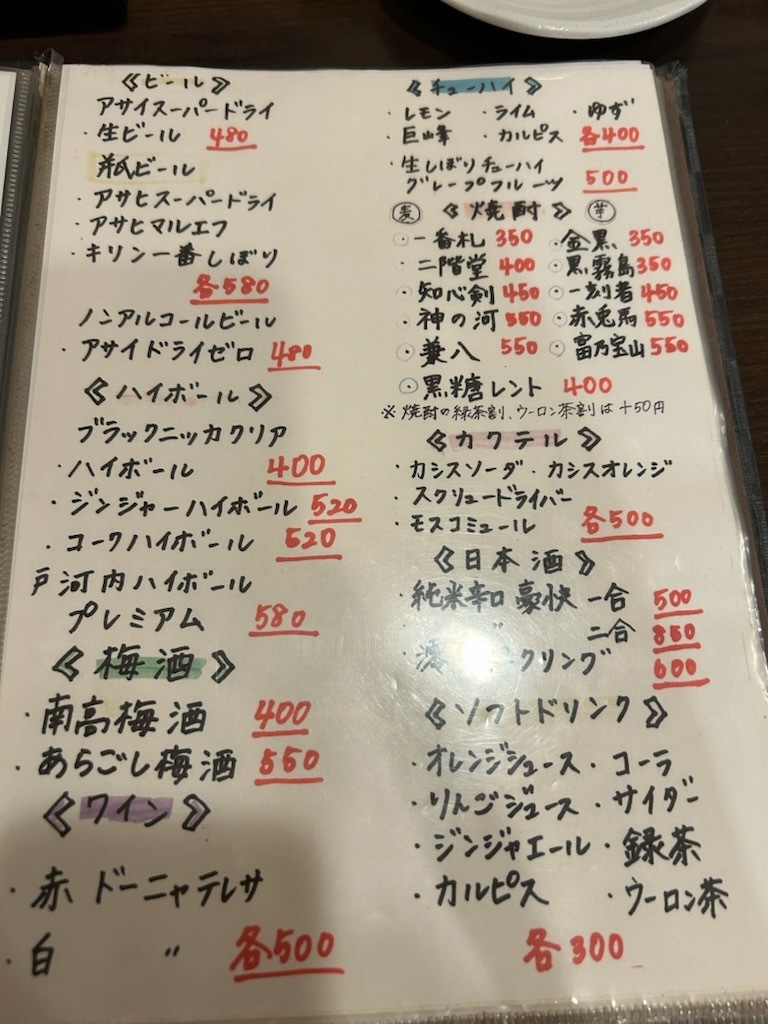 《ビール》
アサイスーパードライ
・生ビール 480
瓶ビール
・アサヒスーパードライ
・アサヒマルエフ
・キリン一番しぼり
各580
ノンアルコールビール
・アサイドライゼロ 480
《ハイボール》
ブラックニッカクリア
・ハイボール 400
・ジンジャーハイボール 520
・コークハイボール 520
戸河内ハイボール
プレミアム 580
《梅酒》
・南高梅酒 400
・あらごし梅酒 550
《ワイン》
・赤 ドーニャテレサ
・白 〃 各500
《チューハイ》
・レモン ・ライム ・ゆず
・巨峰 ・カルピス 各400
・生しぼりチューハイ
グレープフルーツ 500
麦 《焼酎》 芋
・一番札 350 ・金黒 350
・二階堂 400 ・黒霧島 350
・知心剣 450 ・一刻者 450
・神の河 550 ・赤兎馬 550
・兼八 550 ・富乃宝山 550
・黒糖レント 400
※焼酎の緑茶割、ウーロン茶割は+50円
《カクテル》
・カシスソーダ ・カシスオレンジ
・スクリュードライバー
・モスコミュール 各500
《日本酒》
・純米辛口 豪快 一合 500
〃 二合 850
クリング 600
《ソフトドリンク》
・オレンジジュース ・コーラ
・りんごジュース ・サイダー
・ジンジャエール ・緑茶
・カルピス ・ウーロン茶
各300